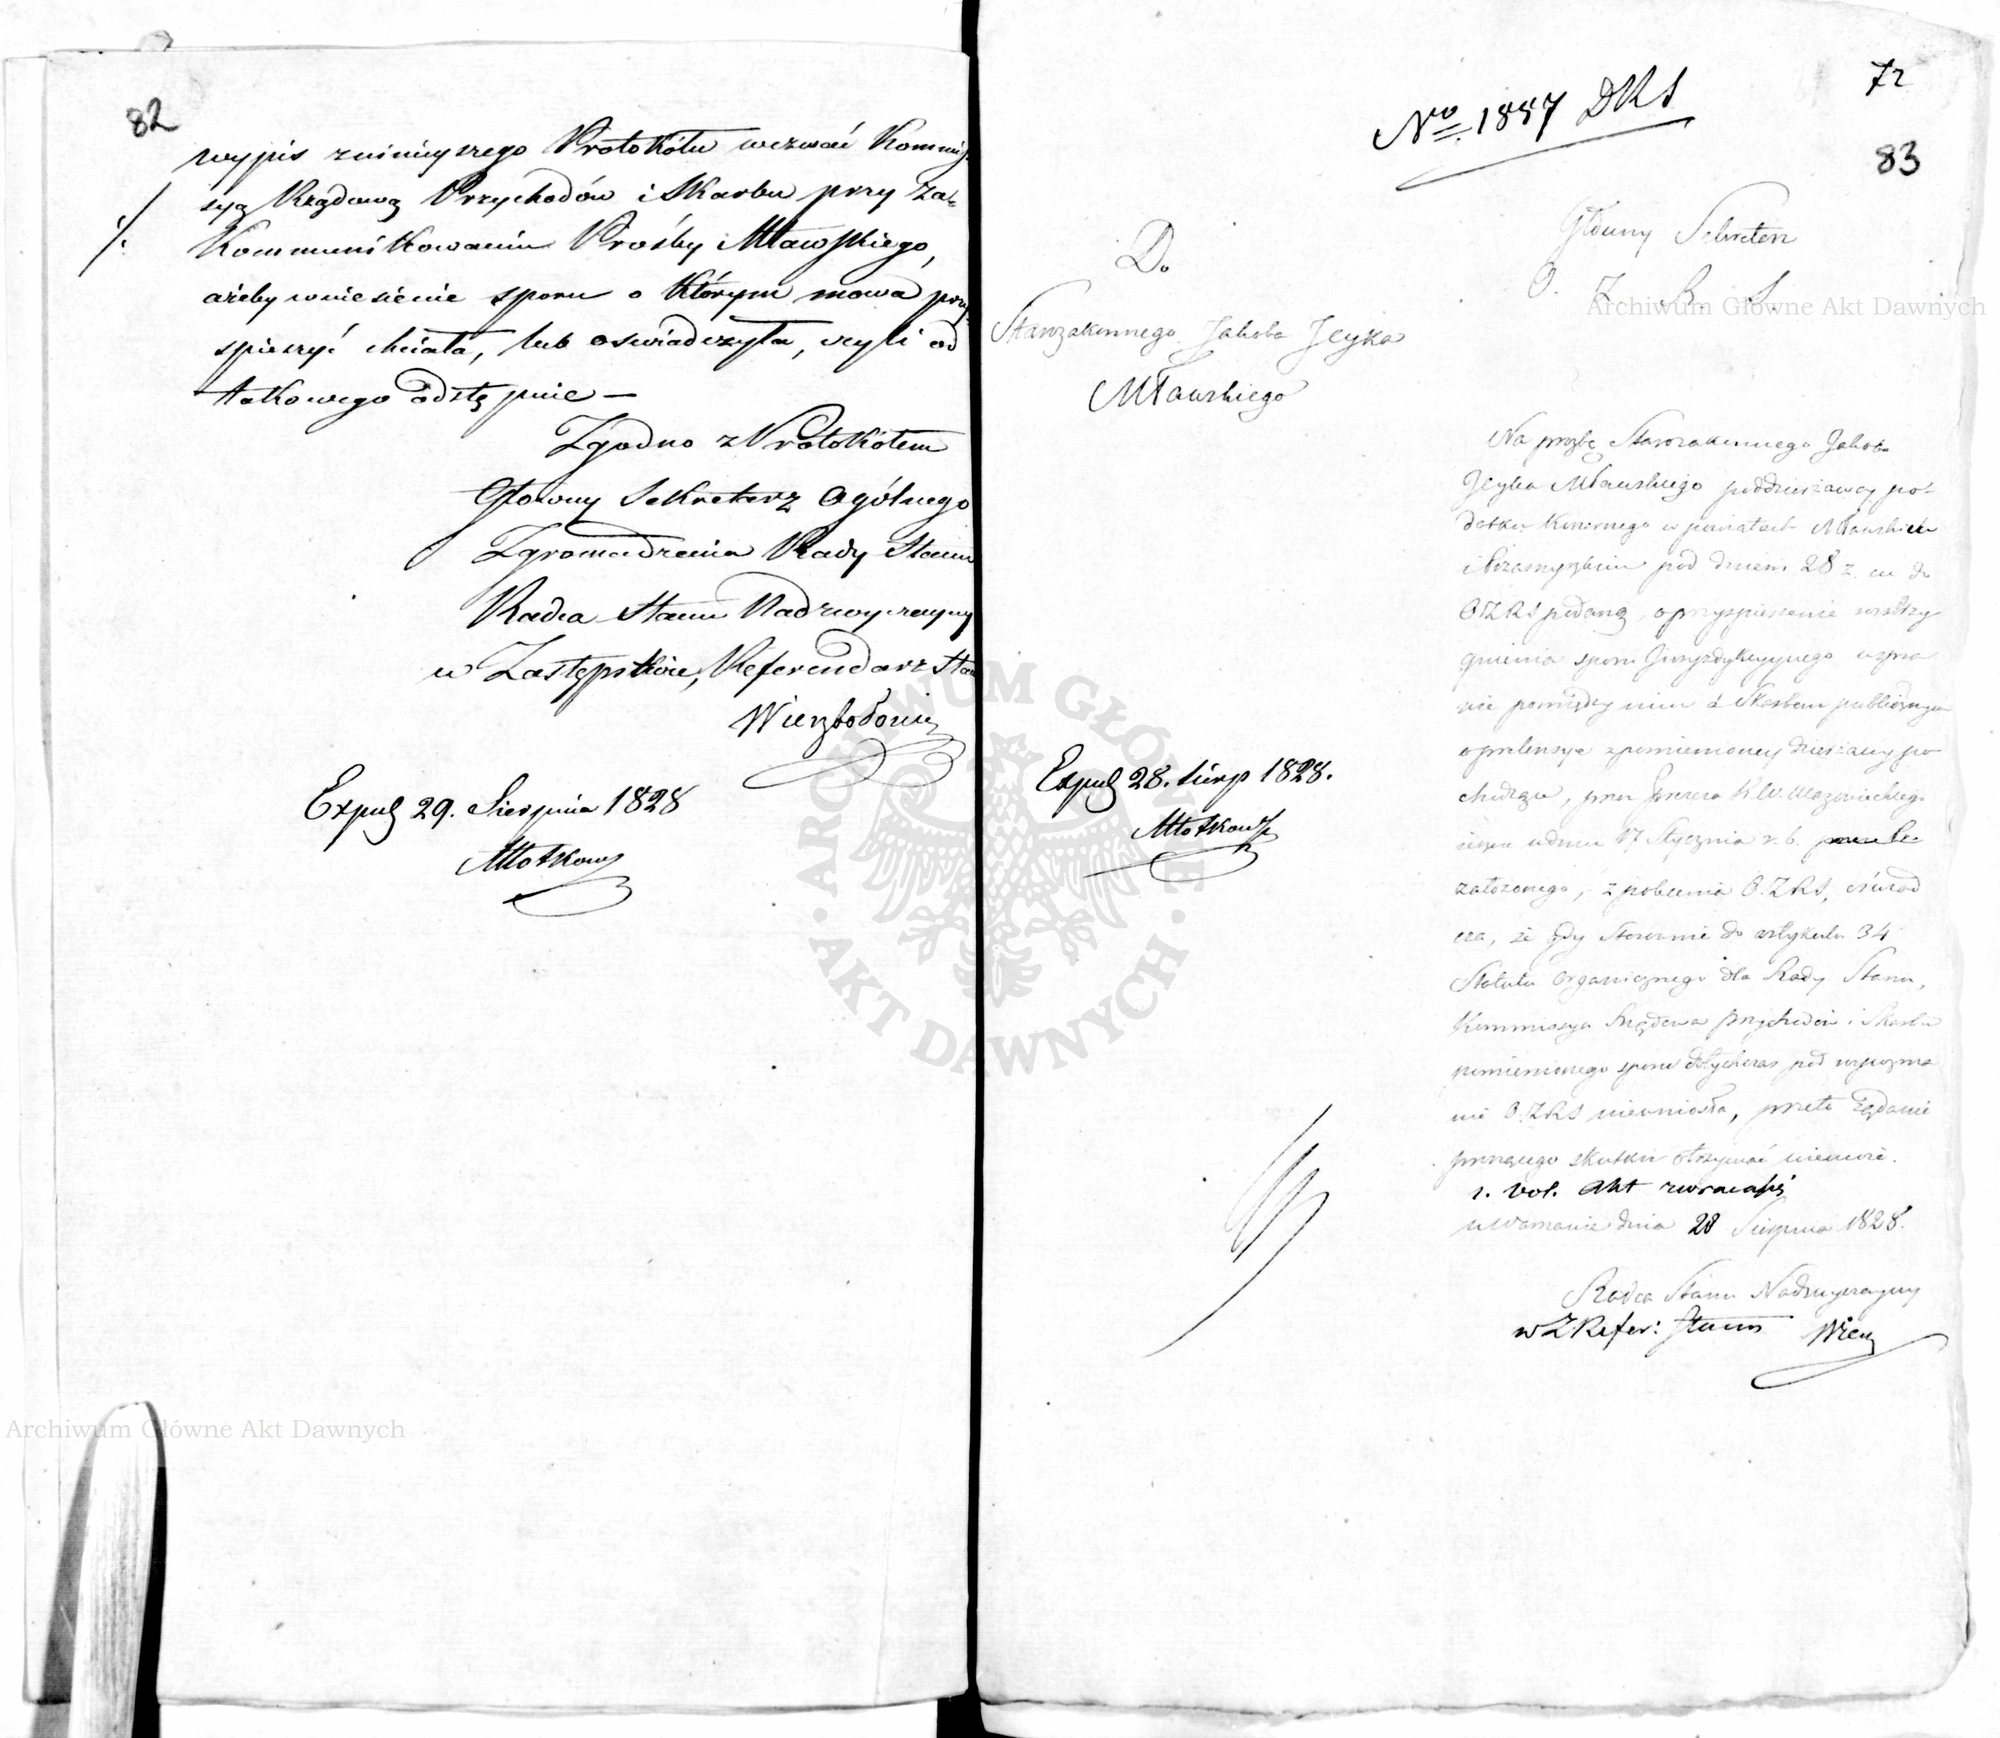 82
wypis ninieyszego Protokółu wezwać Kommis
syą Rządową Przychodów i Skarbu przy za-
Kommunikowaniu Prośby Mławskiego,
ażeby wniesienie sporu o którym mowa przy
spieszyć chciała, lub oświadczyła, czyli od
takowego odstępuie —
Zgodno z Protokółem
Główny Sekretarz Ogólnego
Zgromadzenia Rady Stanu
Radca Stanu Nadzwyczayny
w Zastępstwie, Referendarz Stan
Expud 29. Sierpnia 1828
72
No 1887 DRS
83
Główny Sekretarz
O. Z. R. S.
Do
Starozakonnego Jakoba Icyka
Mławskiego
Na prozbę Starozakonnego Jakoba
Icyka Mławskiego poddzierżawcy po-
datku Konsumnego w powiatach Mławskim
i Przasnyskim pod dniem 28 z. m do
OZRS podaną, o przyspieszenie rozstrzy
gnienia sporu Juryzdykcyinego w spra
wie pomiędzy nim a Skarbem publicznym
o pretensye z pomienioney dzierżawy po
chodzące, przez Prezesa K. W. Mazowieckiego
w dniu 17 Stycznia r. b.
założonego, z polecenia O. Z. R. S, oświad
cza, że gdy stosownie do artykułu 34
Statutu organicznego dla Rady Stanu,
Kommissya Rządowa Przychodów i Skarbu
pomienionego sporu dotychczas pod rozpozna
nie O. Z. R. S niewniosła, przeto żądanie
proszącego skutku otrzymać niemoże.
1. Vol. Akt zwraca się
w Warszawie dnia 28 Sierpnia 1828.
Radca Stanu Nadzwyczayny
w Z Refer: Stanu
Expud 28. Sierp 1828.
Archiwum Główne Akt Dawnych
Archiwum Główne Akt Dawnych
ARCHIWUM GŁÓWNE · AKT DAWNYCH ·